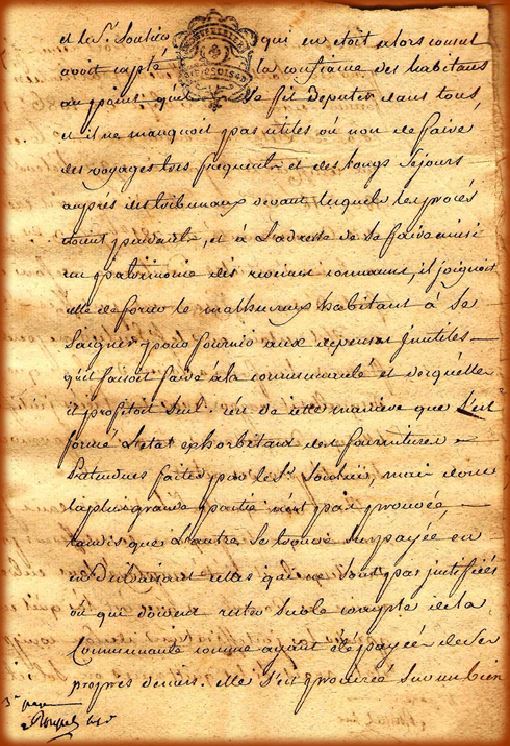 et le Sr. Soulié qui en etoit alors consul
avoit capté la confiance des habitans
au point qu'il se fit deputer dans tous,
et il ne manquoit pas utiles ou non de faire
des voyages tres frequents et des longs sejours
auprés des tribunaux devant lesquels les procés
etoient pendants, et à l'adresse de se faire ainsi
un patrimoine des revenus communs, il joignoit
celle de forcer le malhureux habitant à se
saigner pour fournir aux depenses inutiles
qu'il faisoit faire à la communauté et desquelles
il profitoit seul. c'est de cette maniere que s'est
formé l'etat exhorbitant des fournitures
pretendues faites par le Sr. Soulié, mais dont
la plus grande partie n'est pas prouvée,
tandis que l'autre se trouve surpayée en
en deduisant celles qui ne sont pas justifiées
ou qui doivent rester sur le compte de la
Communauté comme ayant été payées de ses
propres deniers. elle s'est procurée sur un bien
3e